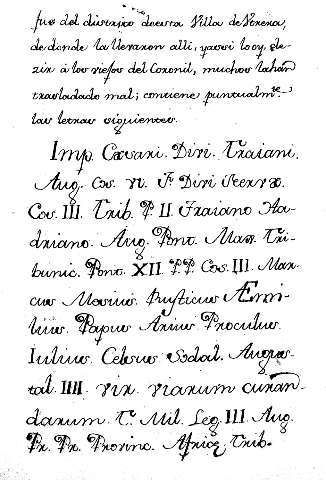 fue del districto de esta Villa de Vtrera,
de donde la llevaron alli, y assi lo oy de-
zir à los viejos del Coronil, muchos la han
trasladado mal; contiene puntualmte
las letras siguientes.
Imp. Cæsari. Divi. Traiani.
Aug. Cos. VI. F Divi Nervæ.
Cos. III. Trib. P. II Traiano Ha-
driano. Aug. Pont. Max. Tri-
bunic. Potes. XII. P.P. Cos. III. Mar-
cus Messius. Rusticus Æmi-
lius. Papus Arrius Proculus.
Iulius. Celsus Sodal. Augus-
tal. IIII. vir viarum curan-
darum. T. Mil. Leg. III. Aug.
Pr. Pr. Provinc. Africæ Trib.